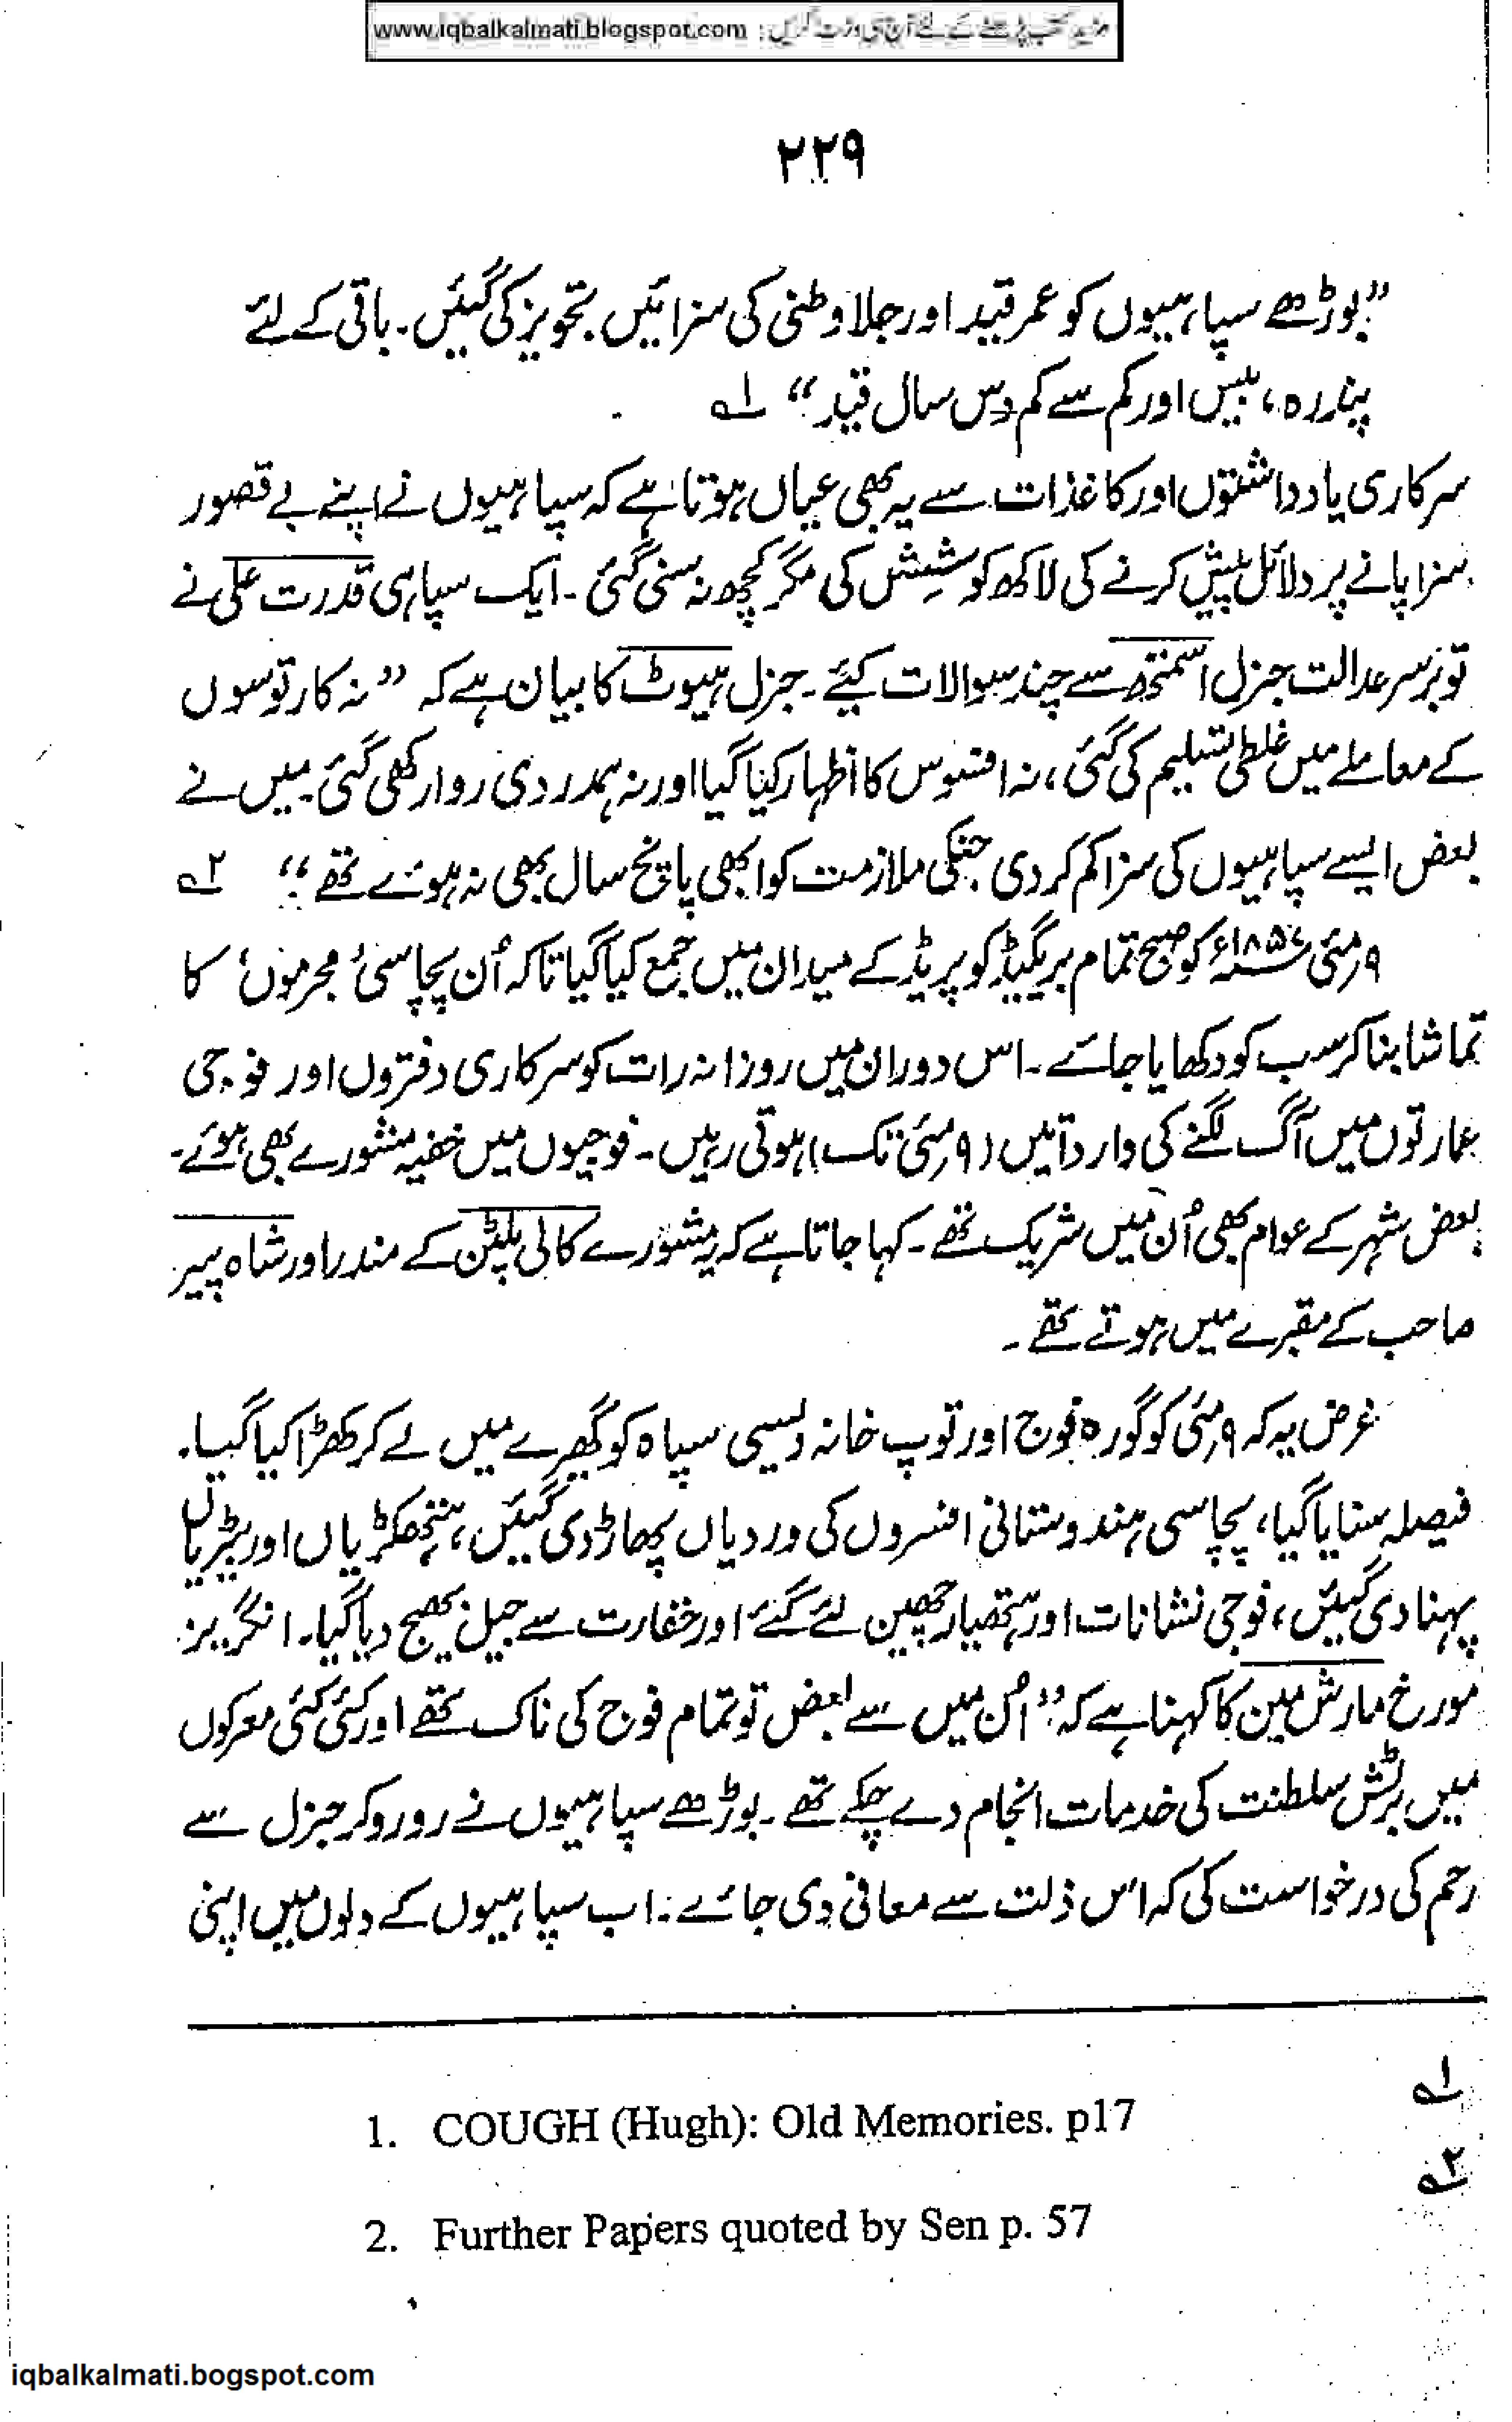 www.iqbalkalmati.blogspot.com : مزید کتب پڑھنے کے لئے آج ہی وزٹ کریں
۲۲۹
”بوڑھے سپاہیوں کو عمر قید اور جلاوطنی کی سزائیں تجویز کی گئیں۔ باقی کے لئے
پندرہ، بیس اور کم سے کم دس سال قید“ ۱؎
سرکاری یادداشتوں اور کاغذات سے یہ بھی عیاں ہوتا ہے کہ سپاہیوں نے اپنے بے قصور
سزا پانے پر دلائل پیش کرنے کی لاکھ کوشش کی مگر کچھ نہ سنی گئی۔ ایک سپاہی قدرت علی نے
تو برسر عدالت جنرل اسمتھ سے چند سوالات کیئے۔ جنرل ہیوٹ کا بیان ہے کہ ”نہ کارتوسوں
کے معاملے میں غلطی تسلیم کی گئی، نہ افسوس کا اظہار کیا گیا اور نہ ہمدردی روا رکھی گئی۔ میں نے
بعض ایسے سپاہیوں کی سزا کم کر دی جنکی ملازمت کو ابھی پانچ سال بھی نہ ہوئے تھے“ ۲؎
۹ مئی ۱۸۵۷ء کو صبح تمام بریگیڈ کو پریڈ کے میدان میں جمع کیا گیا تاکہ اُن پچاسی ’مجرموں‘ کا
تماشا بنا کر سب کو دکھایا جائے۔ اس دوران میں روزانہ رات کو سرکاری دفتروں اور فوجی
عمارتوں میں آگ لگنے کی وارداتیں (۹ مئی تک) ہوتی رہیں۔ فوجیوں میں خفیہ مشورے بھی ہوئے۔
بعض شہر کے عوام بھی اُن میں شریک تھے۔ کہا جاتا ہے کہ یہ مشورے کالی پلٹن کے مندر اور شاہ پیر
صاحب کے مقبرے میں ہوتے تھے۔
غرض یہ کہ ۹ مئی کو گورہ فوج اور توپ خانہ دیسی سپاہ کو گھیرے میں لے کر کھڑا کیا گیا۔
فیصلہ سنایا گیا، پچاسی ہندوستانی افسروں کی وردیاں پھاڑ دی گئیں، ہتھکڑیاں اور بیڑیاں
پہنا دی گئیں، فوجی نشانات اور ہتھیار چھین لئے گئے اور حفارت سے جیل بھیج دیا گیا۔ انگریز
مورخ مارش مین کا کہنا ہے کہ ”اُن میں سے بعض تو تمام فوج کی ناک تھے اور کئی کئی معرکوں
میں برٹش سلطنت کی خدمات انجام دے چکے تھے۔ بوڑھے سپاہیوں نے رو رو کر جنرل سے
رحم کی درخواست کی کہ اس ذلت سے معافی دی جائے۔ اب سپاہیوں کے دلوں میں اپنی
۱؎
1. COUGH (Hugh): Old Memories. p17
۲؎
2. Further Papers quoted by Sen p. 57
iqbalkalmati.bogspot.com